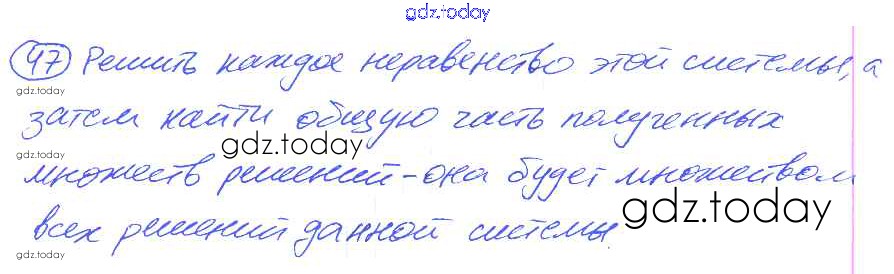 gdz.today
47 Решить каждое неравенство этой системы, а
gdz.today
gdz.today
затем найти общую часть полученных
gdz.today
gdz.today
множеств решений - она будет множеством
gdz.today
всех решений данной системы.
gdz.today